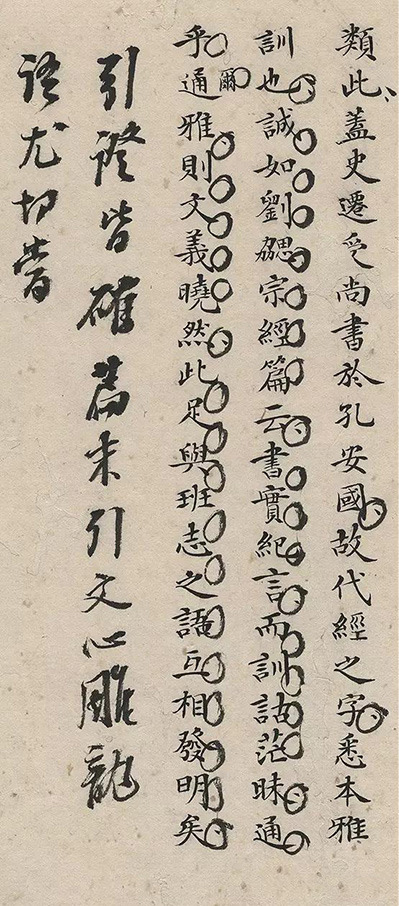 類此蓋史遷受尚書於孔安國故代經之字悉本雅
訓也誠如劉勰宗經篇云書實紀言而訓詁茫昧通
乎通爾雅則文義曉然此足與班志之語互相發明矣
引證皆確篇末引文心雕龍
語尤切當